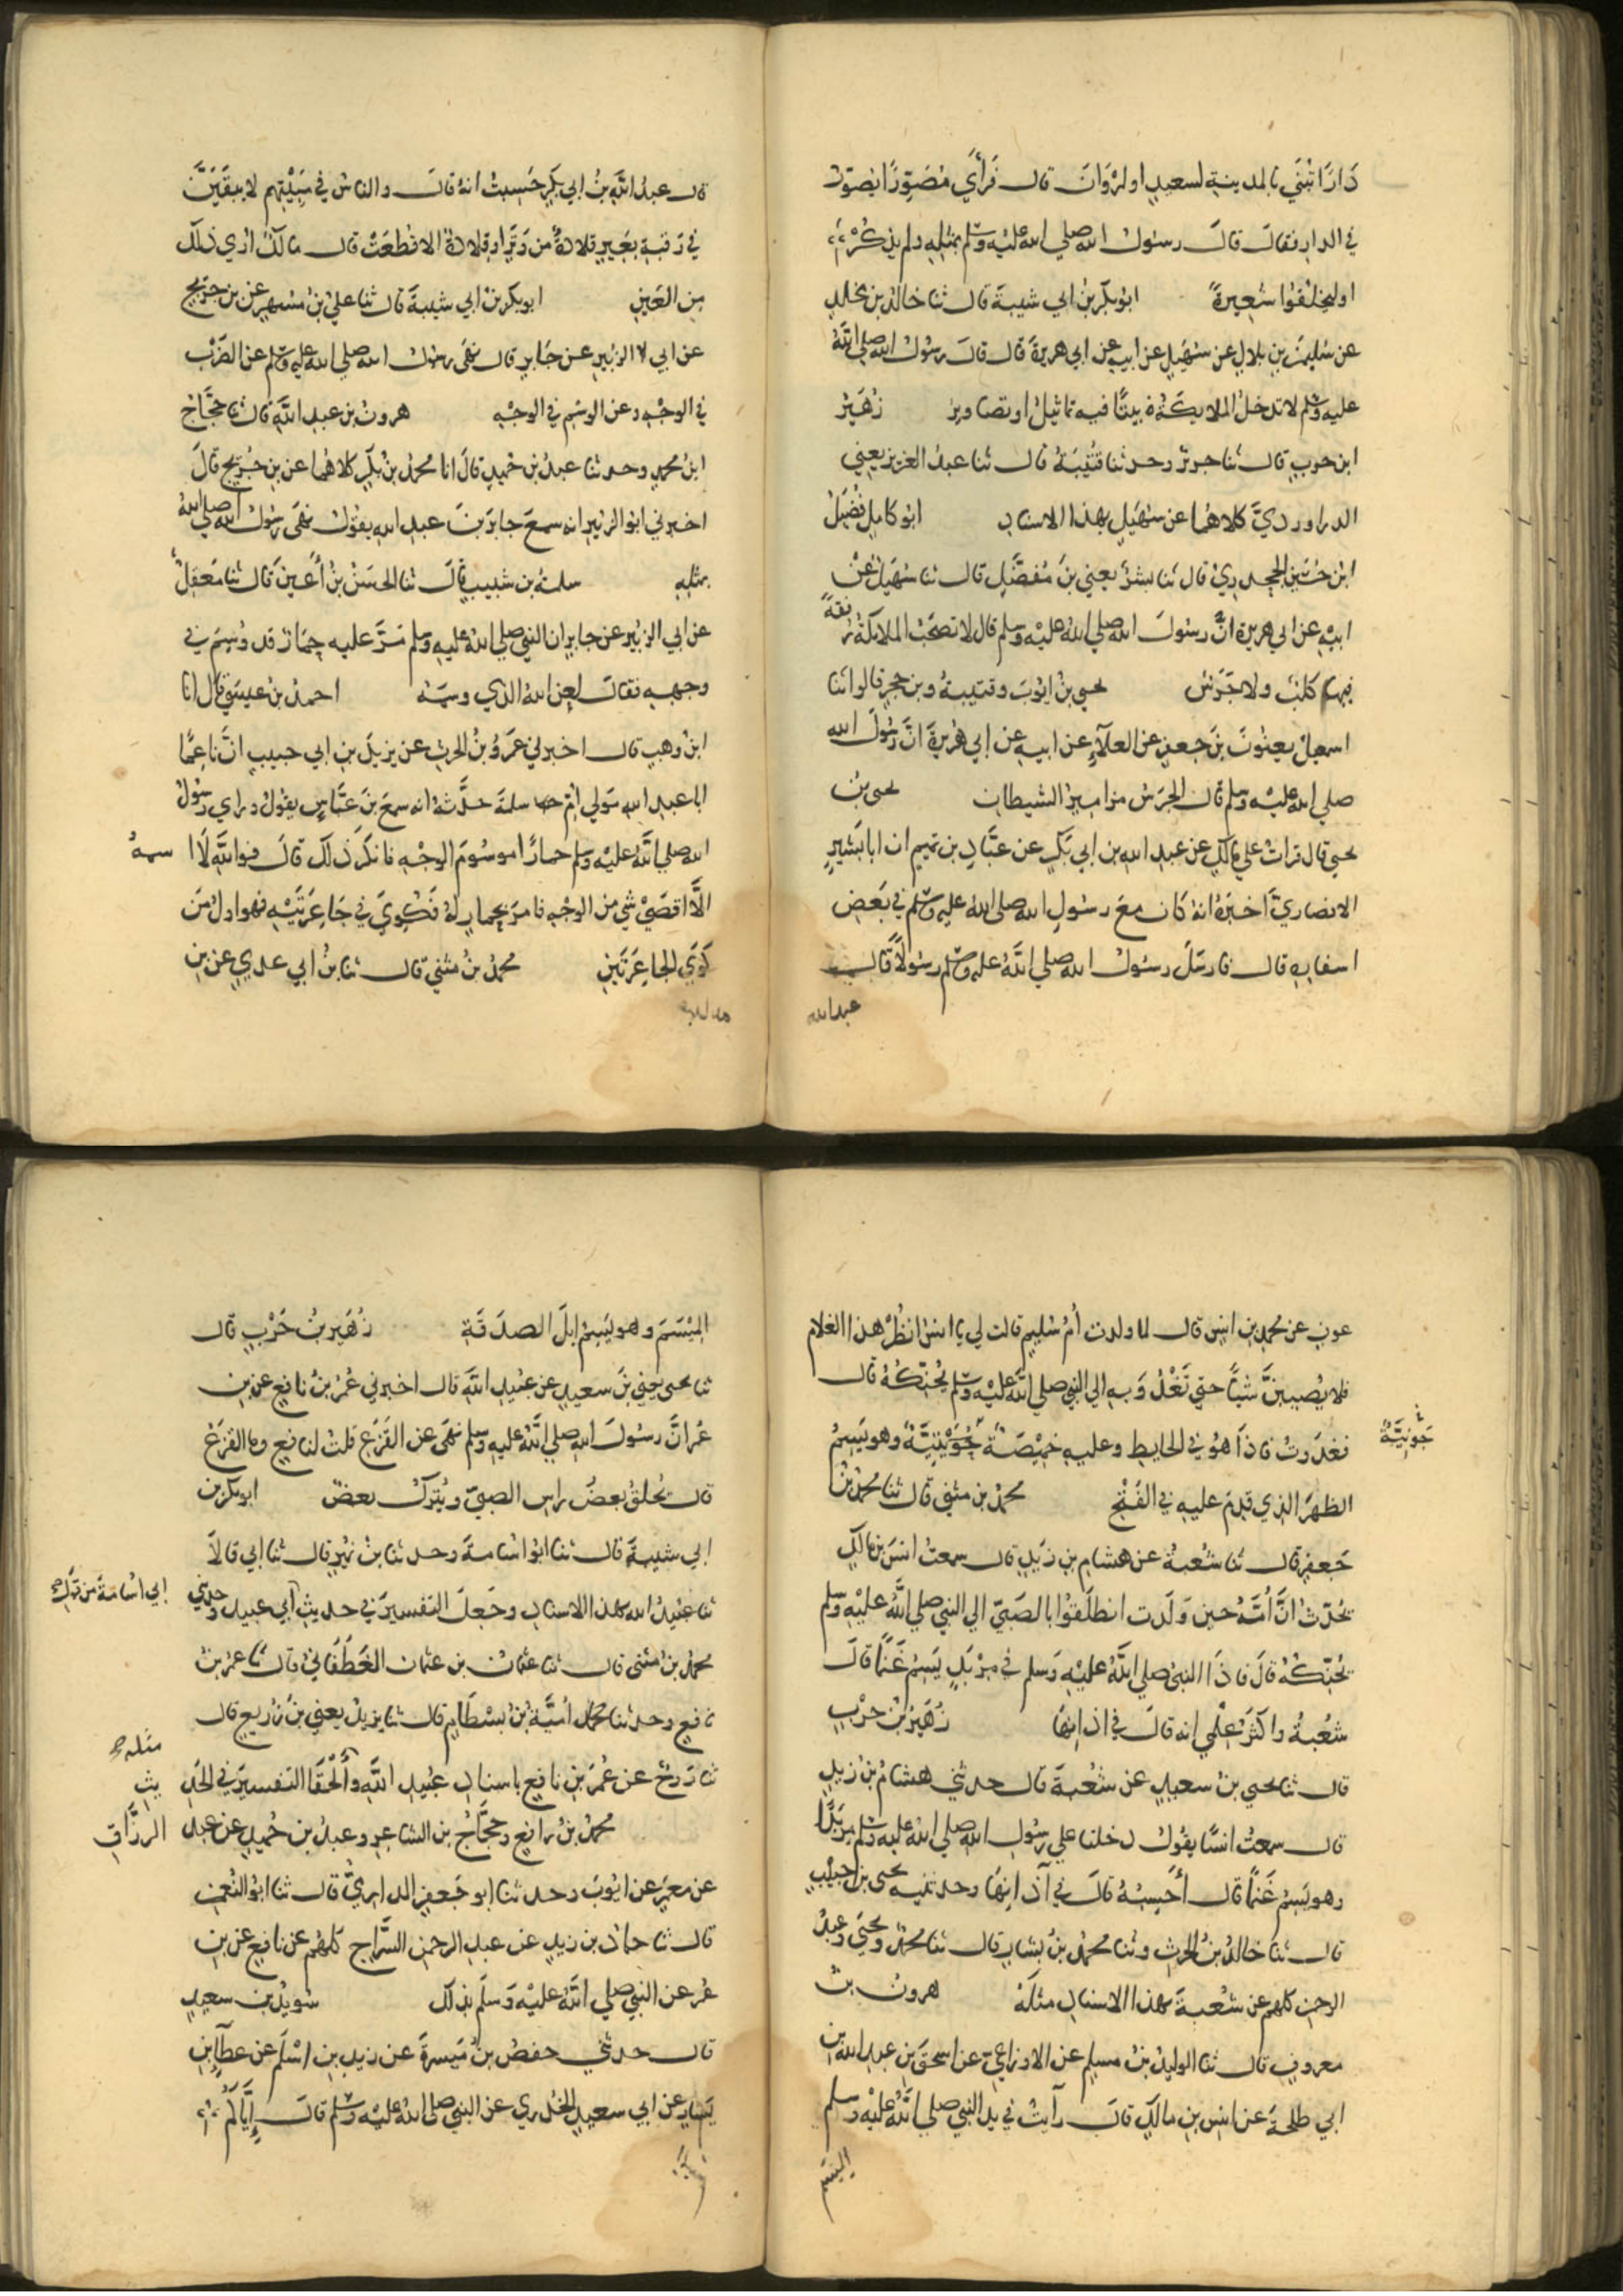 دَارًا تُبْنَي بالمدينةِ لسعيدٍ او لمرْوَانَ قال فَرَأَي مُصَوِّرًا يُصَوّرُ
في الدارِ فقالَ قالَ رسُولُ الله صلي الله عليْه وسلّم بمثلِهِ ولم يذكُرْ
او ليخلُقوا شَعِيرةً ابُو بكر بنُ ابي شيبةَ قال ثنا خالدُ بن مخلدٍ
عن سُليمنَ بنِ بلالٍ عن سُهَيلٍ عن ابيهِ عن ابي هريرةَ قال قالَ رسُولُ الله صلي اللهُ
عليه وسلّم لا تدخلُ الملايكةُ بيتًا فيه تماثيلُ او تصاويرُ زُهَيْرُ
ابن حربٍ قالَ ثنا جريرٌ وحدثنا قُتَيْبَةُ قال ثنا عبدُ العزيزِ يعني
الدراورديَّ كلاهُما عن سُهَيلٍ بهذا الاسنادِ ابو كاملٍ فُضَيلُ
ابن حُسَينٍ الجحدريُّ قال ثنا بشرٌ يعني بنَ مُفضَّلٍ قال ثنا سُهَيلٌ عنْ
ابيْهِ عن ابي هريرةَ انَّ رسُولَ الله صلي الله عليْه وسلم قال لا تصحَبُ الملايكةُ رُفقةً
فيها كلبٌ ولا جَرَسٌ يحيى بنُ ايوبَ وقتيبةُ وبن حجرٍ قالوا ثنا
اسمعيلُ يعنُونَ بنَ جعفرٍ عن العلآءِ عن ابيهِ عن ابي هريرةَ انَّ رسُولَ الله
صلي الله عليْه وسلم قال الجَرَسُ مزاميرُ الشيطانِ يحيى بنُ
يحيى قال قرأتُ علي مالكٍ عن عبدِ الله بن ابي بكرٍ عن عبَّادِ بن تميمٍ ان ابا بشيرٍ
الانصاريَّ اخبَرهُ انهُ كان معَ رسُولِ الله صلي الله عليه وسلّم في بَعضِ
اسفارِهِ قال فارسَلَ رسُولُ الله صلي اللهُ عليه وسلّم رسُولاً قال
عبدالله
قال عبدُ اللهِ بنُ ابي بكرٍ حَسِبتُ انهُ قالَ والناسُ في مَبِيْتِهم لا يبقَيَنَّ
في رَقبةِ بَعيرٍ قلادةٌ من وَتَرٍ او قلادةٌ الا قُطعَتْ قال مالكٌ اُرَي ذلكَ
مِن العَينِ ابو بكر بنُ ابي شيبةَ قال ثنا عليُّ بنُ مُسهِرٍ عن بن جريجٍ
عن ابي الزبيرِ عن جَابرٍ قال نهَى رسُولُ الله صلي الله عليه وسلّم عن الضَرْبِ
في الوجْهِ وعن الوسْمِ في الوجْهِ هرونُ بن عبدِ اللهِ قال ثنا حجَّاجُ
ابنُ محمدٍ وحدثنا عبدُ بن حُميدٍ قالَ انا محمدُ بنُ بكرٍ كلاهُما عن بن جُريجٍ قالَ
اخبرني ابُو الزبيرِ انه سمعَ جابرَ بنَ عبدِ الله يقُولُ نهَى رسُولُ الله صلي اللهُ
بمثلِهِ سلمةُ بن شبيبٍ قالَ ثنا الحسَنُ بنُ أَعينَ قالَ ثنا مَعقِلٌ
عن ابي الزبير عن جابرٍ ان النبيَّ صلي اللهُ عليه وسلم مَرَّ عليه حِمَارٌ قد وُسِمَ في
وجههِ فقالَ لعَن اللهُ الذي وسمَهُ احمدُ بنُ عيسَى قال انا
ابنُ وهبٍ قال اخبرني عَمرُو بنُ الحرثِ عن يزيدَ بنِ ابي حبيبٍ انَّ ناعِمًا
ابا عبدِ الله مَولي امّ سلمةَ حدَّثهُ انه سمعَ بنَ عبَّاسٍ يقولُ وراي رسُولُ
الله صلي اللهُ عليْه وسلم حمارًا موسُومَ الوجْهِ فانكرَ ذلكَ قالَ فواللهِ لَا اسمهُ
الَّا اقصَيْ شيٍ من الوجْهِ فامرَ بحمارٍ لهُ فَكُويَ في جَاعِرَتَيْهِ فهوا اولُ مَن
كَوَي الجاعِرَتَينِ محمدُ بنُ مثني قال ثنا بنُ ابي عدِيٍ عن بنِ
عونٍ عن محمدٍ عن انسٍ قال لما ولدت أمُ سُليمٍ قالت لي يا انسُ انظُرْ هذا الغلامَ
فلا يُصيبنَّ شياً حتي تَغْدُوَ به الي النبي صلي اللهُ عليْه وسلّم يُحنِّكُهُ قال
فغدَوتُ فاذَا هوُ في الحايطِ وعليهِ خميْصَةٌ جُوَيْنِيَّةٌ وهو يَسِمُ
جَوْنِيَّةٌ
الظهرَ الذي قدِمَ عليهِ في الفَتْحِ محمدُ بن مثني قال ثنا محمدُ بنُ
جَعفرٍ قال ثنا شُعبةُ عن هشامِ بن زيدٍ قال سمعتُ انسَ بن مالكٍ
يُحدّثُ انَّ أُمَّهُ حينَ وَلَدت انطلَقوُا بالصَبيّ الي النبي صلي اللهُ عليْه وسلم
يُحنّكُهُ قالَ فاذَا النبيُّ صلي اللهُ عليْه وَسلم في مِرْبَدٍ يَسِمُ غَنَمًا قالَ
شُعْبةُ واكثَرُ عِلْمي انه قالَ في اذانِهَا زُهَيْرُ بنُ حَرْبٍ
قال ثنا يحيي بنُ سعيدٍ عن شُعْبةَ قال حدثني هشامُ بنُ زيدٍ
قال سمعتُ انسًا يقولُ دخلنا علي رسُولِ الله صلي اللهُ عليْه وسلّم مِربَدًا
وهو يَسِمُ غَنَمًا قال أَحْسِبهُ قالَ في آذانِهَا وحدثنيه يحيى بن حبيْبٍ
قال ثنا خالدُ بنُ الحرثِ وثنا محمدُ بنُ بشارٍ قال ثنا محمدٌ ويحيَى وعبدُ
الرحمنِ كلهم عن شُعْبةَ بهذا الاسنادِ مثلَهُ هرونُ بنُ
معروفٍ قال ثنا الوليدُ بنُ مسلمٍ عن الاوزاعيّ عن اسحقَ بنِ عبدِ الله بنِ
ابي طلحةَ عن انسِ بن مالكٍ قالَ رأيتُ في يدِ النبي صلي اللهُ عليْه وسلم
الميسم
المِيْسَمَ وهو يَسِمُ ابلَ الصدَقَةِ زُهَيرُ بنُ حَرْبٍ قال
ثنا يحيى يعني بنَ سعيدٍ عن عُبيدِ اللهِ قال اخبرني عُمرُ بنُ نافعٍ عن بنِ
عُمرَ انَّ رسُولَ الله صلي اللهُ عليه وسلم نهَى عن القَزَعِ قلتُ لنافعٍ وما القزعُ
قال يُحلقُ بعضُ راسِ الصبيّ ويُتركُ بعضٌ ابو بكر بن
ابي شيبةَ قال ثنا ابُو اسَامةَ وحدثنا بنُ نميرٍ قال ثنا ابي قالاَ
ثنا عبيدُ الله بهذا الاسنادِ وجَعلَ التفسيرَ في حديثِ أبي عبيد وحدثني
ابي اسَامَةَ من قَولِ
محمدُ بن مثنى قال ثنا عثمانُ بن عثمانَ الغَطَفَانيُّ قال ثنا عمرُ بنُ
نافعٍ وحدثنا أميَّةُ بنُ بِسْطامٍ قال ثنا يزيدُ يعني بنَ زُريعٍ قال
ثنا رَوحٌ عن عُمرَ بنِ نافعٍ باسنادِ عُبيدِ اللهِ وأَلْحَقَا التفسيرَ في الحد
مثله
يثِ
محمدُ بنُ رافعٍ وحجَّاجُ بن الشاعرِ وعبدُ بن حُميدٍ عن عبدِ الرزَّاقِ
عن معمرٍ عن ايوبَ وحدثنا ابو جَعفرٍ الدارميُّ قال ثنا ابُو النُعمنِ
قال ثنا حمادُ بن زيدٍ عن عبدِ الرحمنِ السَّراجِ كلهُم عن نافعٍ عن بنِ
عُمرَ عن النبيّ صلي اللهُ عليْه وَسلَّم بذلكَ سُويدُ بن سعيدٍ
قال حدثني حفصُ بنُ مَيْسرةَ عن زيدِ بنِ اسْلَمَ عن عطآءِ بنِ
يَسَارٍ عن ابي سعيدٍ الخدريِ عن النبي صلي اللهُ عليْه وسلّم قالَ إيَّاكُم